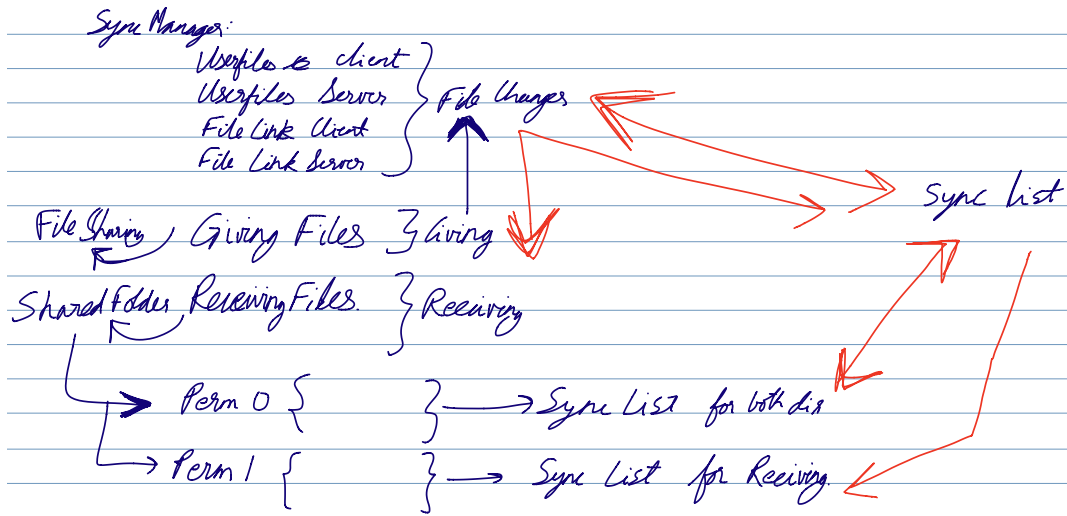 Sync Manager:
Userfiles client
Userfiles Server
File Link Client
File Link Server
File Changes
Sync List
File Sharing
Giving Files
Giving
Shared Folder
Receiving Files.
Receiving
Perm 0 { } → Sync List for both dir
Perm 1 { } → Sync List for Receiving.